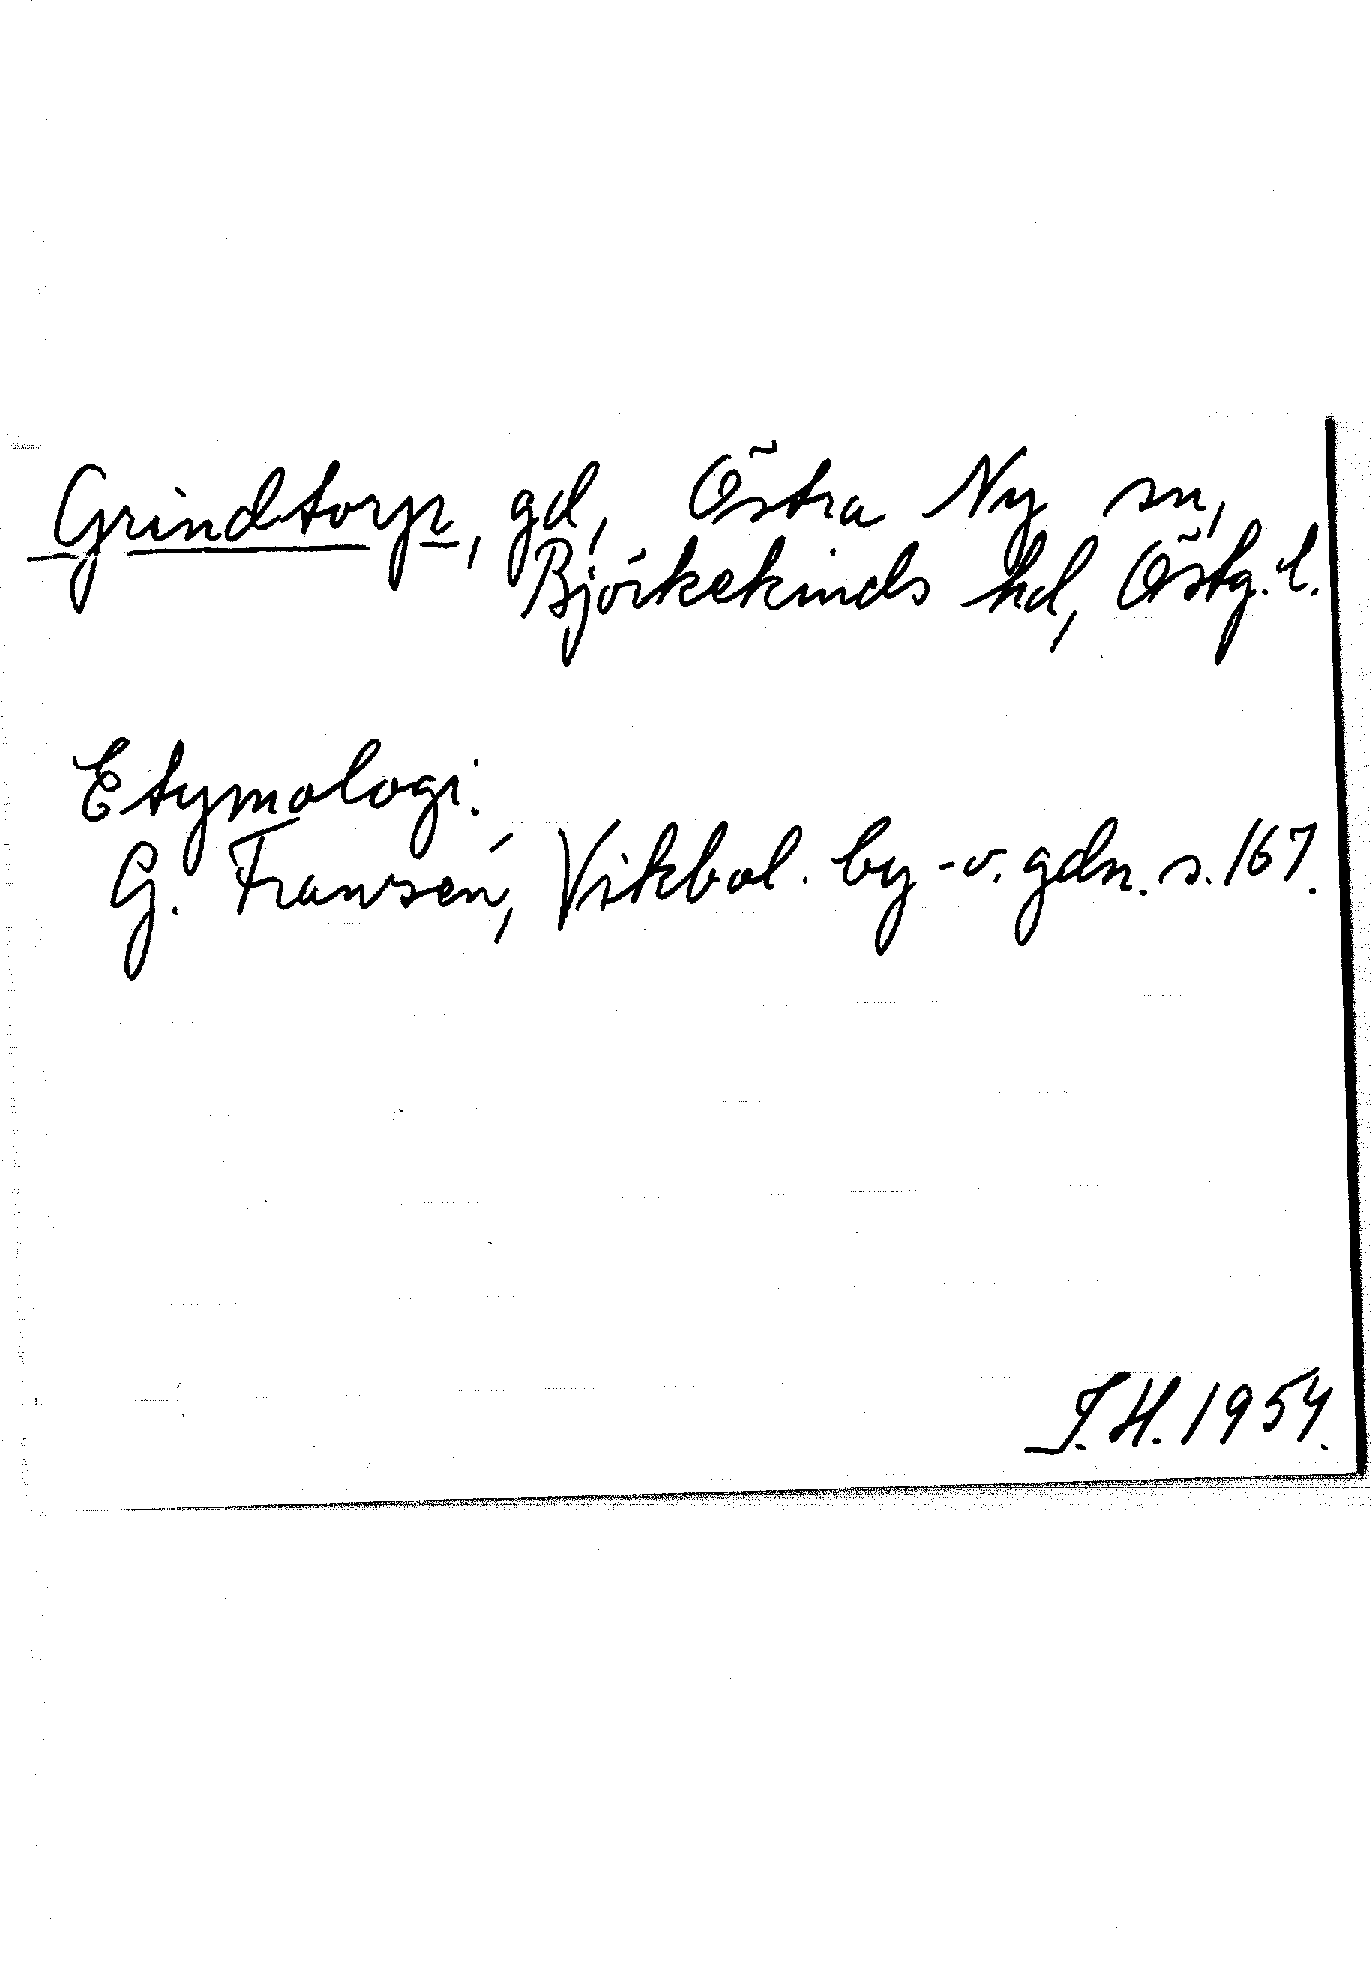 Grindtorp, gd, Östra Ny sn,
Björkekinds hd, Östg. l.
Etymologi.
G. Fransén, Vikbol. by -o. gdn. s. 167.
J.H. 1954.